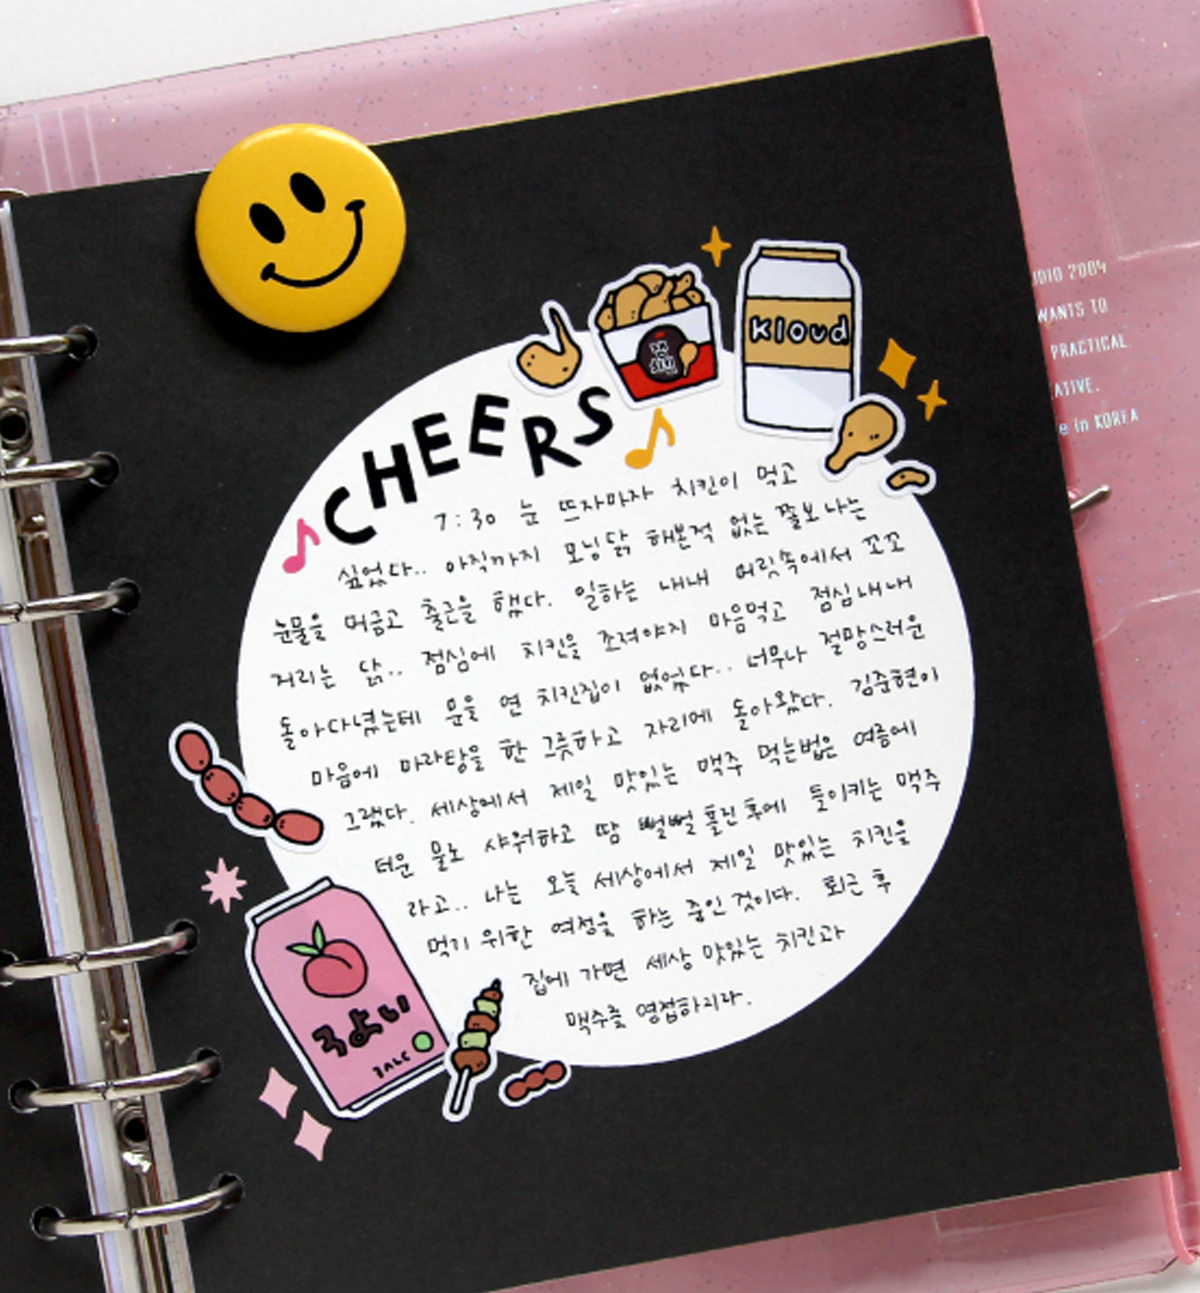 CHEERS
7:30 눈 뜨자마자 치킨이 먹고
싶었다.. 아직까지 모닝닭 해본적 없는 쫄보 나는
눈물을 머금고 출근을 했다. 일하는 내내 머릿속에서 꼬꼬
거리는 닭.. 점심에 치킨을 조져야지 마음먹고 점심내내
돌아다녔는데 문을 연 치킨집이 없었다.. 너무나 절망스러운
마음에 마라탕을 한 그릇하고 자리에 돌아왔다. 김준현이
그랬다. 세상에서 제일 맛있는 맥주 먹는법은 여름에
더운 물로 샤워하고 땀 뻘뻘 흘린 후에 들이키는 맥주
라고.. 나는 오늘 세상에서 제일 맛있는 치킨을
먹기 위한 여정을 하는 중인 것이다. 퇴근 후
집에 가면 세상 맛있는 치킨과
맥주를 영접하리라.
Kloud
UDIO 2004
WANTS TO
PRACTICAL
ATIVE.
e in KOREA